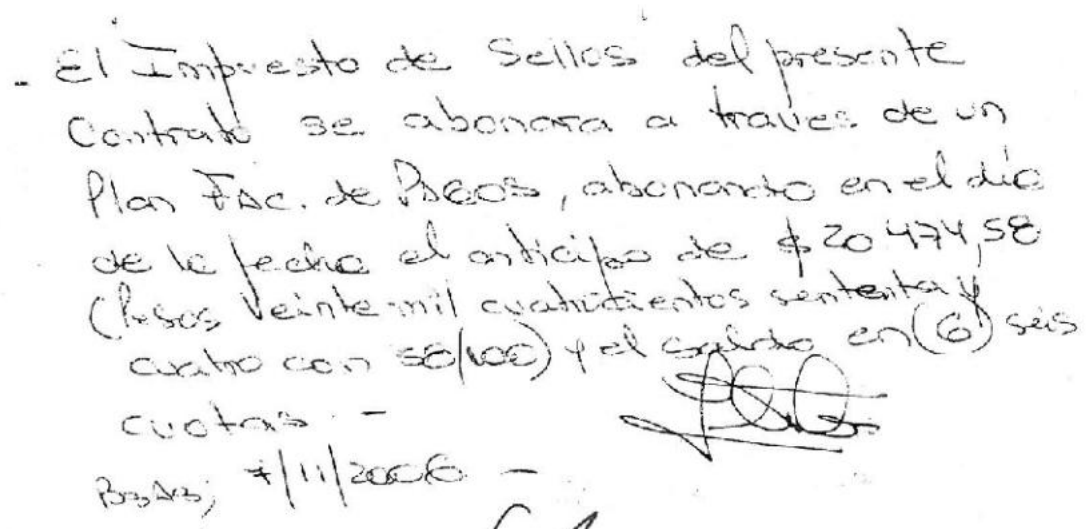 - El Impuesto de Sellos del presente
Contrato se abonara a traves de un
Plan FAC. de PAGOS, abonando en el día
de la fecha el anticipo de $ 20 474,58
(Pesos Veinte mil cuatrocientos setenta y
cuatro con 58/100) y el saldo en (6) seis
cuotas. -
BsAs, 7/11/2006 -